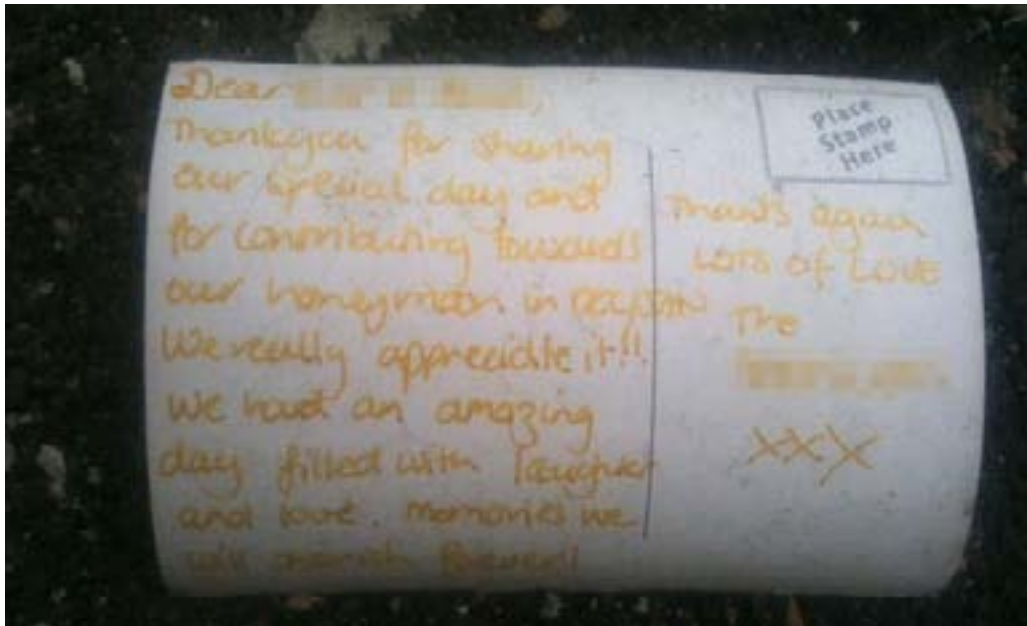 Dear
Thankyou for sharing
our special day and
for contributing towards
our honeymoon in
We really appreciate it!!
We had an amazing
day filled with laughter
and love. Memories we
will forever!!
Place
Stamp
Here
Thanks again
LOTS OF LOVE
The
xxx